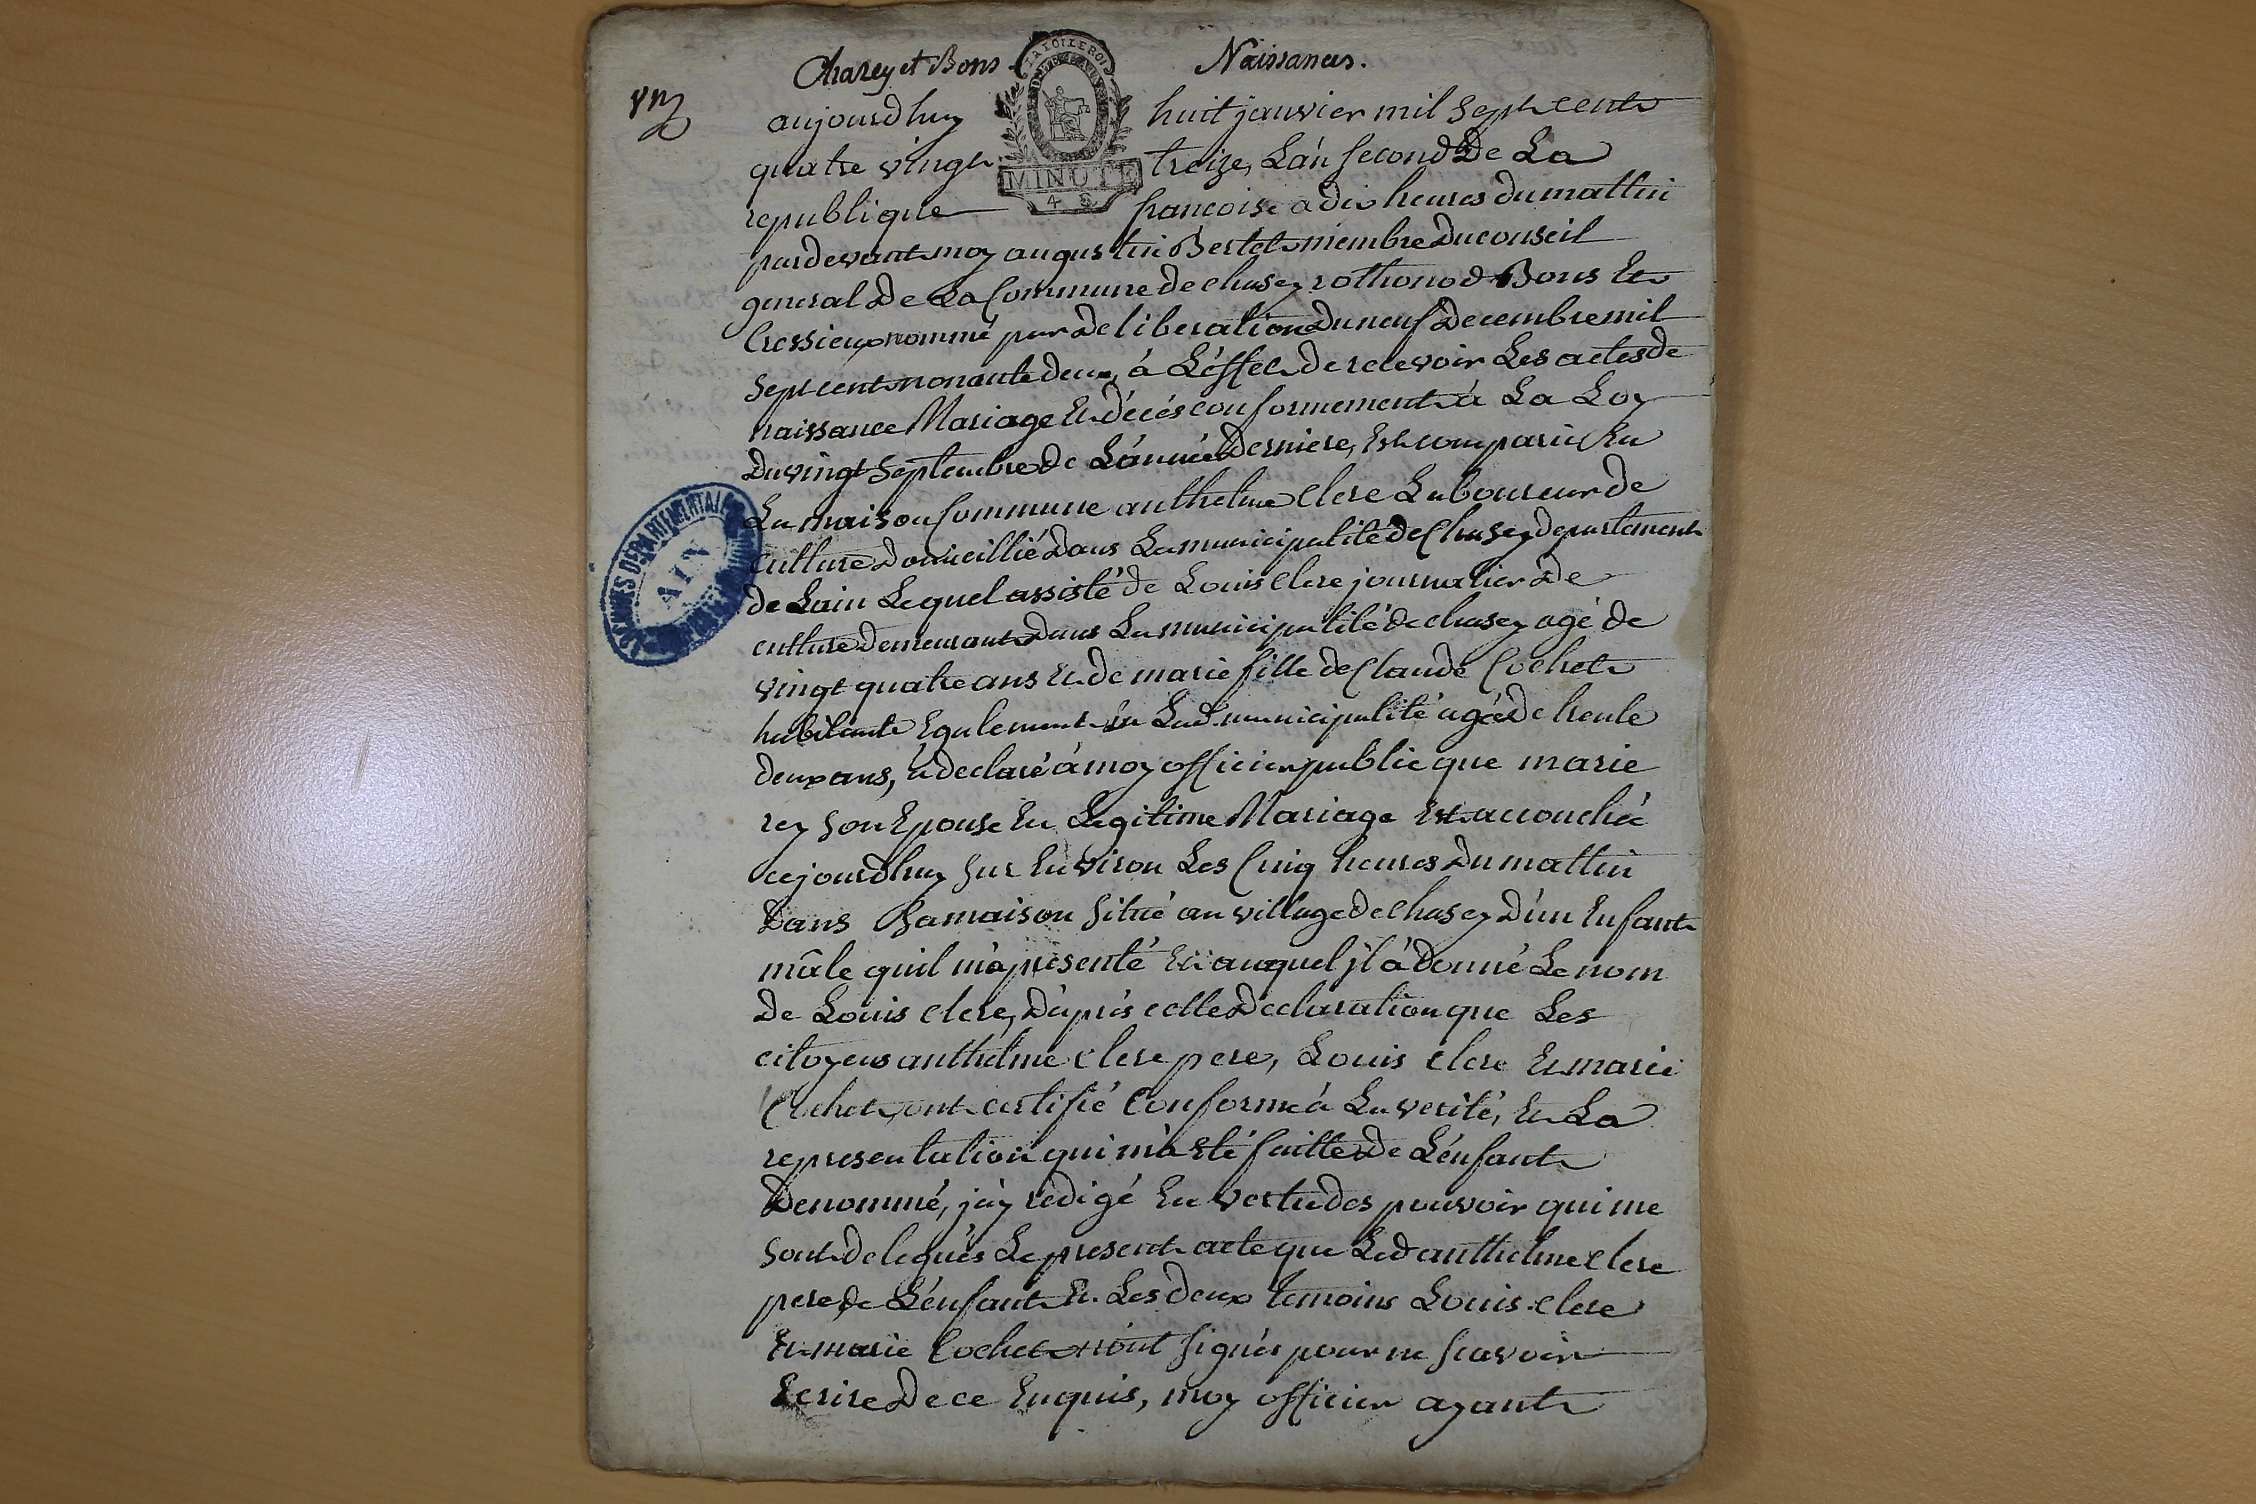 Chazey et Bons
Naissances.
LA LOI LE ROI
MINUTE
4 S
ARCHIVES DEPARTEMENTALES
AIN
aujourdhuy huit janvier mil Sept cent
quatre vingt treize, L'an Second De La
republique francoise a dix heures du mattin
pardevant moy augustin Bertet membre Du conseil
general De La Commune de chasey rothonod Bons Et
Cressieux nommé par Deliberation Du neuf Decembre mil
Sept cent nonante deux, à L'effet De recevoir Les actes de
naissance Mariage Et décés conformement à La Loy
Du vingt Septembre De L'année Derniere, Est comparu En
La maison Commune anthelme Clere Laboureur de
culture Domicillié Dans La municipalité de Chasey departement
de Lain Lequel assisté de Louis Clere journalier De
culture Demeurant Dans La municipalité de chasey agé de
vingt quatre ans Et de marie fille de Claude Cochet
habitante Egalement En Lad. municipalité agée De trente
deux ans, a declaré à moy officier public que marie
rey Son Epouse En Legitime Mariage Est accouchée
cejourdhuy Sur Environ Les Cinq heures Du mattin
Dans Sa maison Situé au village de chasey D'un Enfant
mâle quil m'a presenté Et auquel jl a Donné Le nom
De Louis clere, D'aprés cette Declaration que Les
citoyens anthelme clere pere, Louis clere Et marie
Cochet, ont certifié Conforme à La verité, Et La
representation qui m'a Eté faitte De L'enfant
Denommé, j'ay redigé En vertu des pouvoir qui me
Sont delegués Le present acte que Led anthelme Clere
pere de L'enfant Et Les Deux temoins Louis Clere
Et marie Cochet n'ont Signés pour ne Scavoir
Ecrire De ce Enquis, moy officier ayant